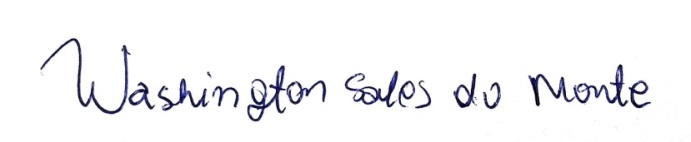 Washington Sales do Monte